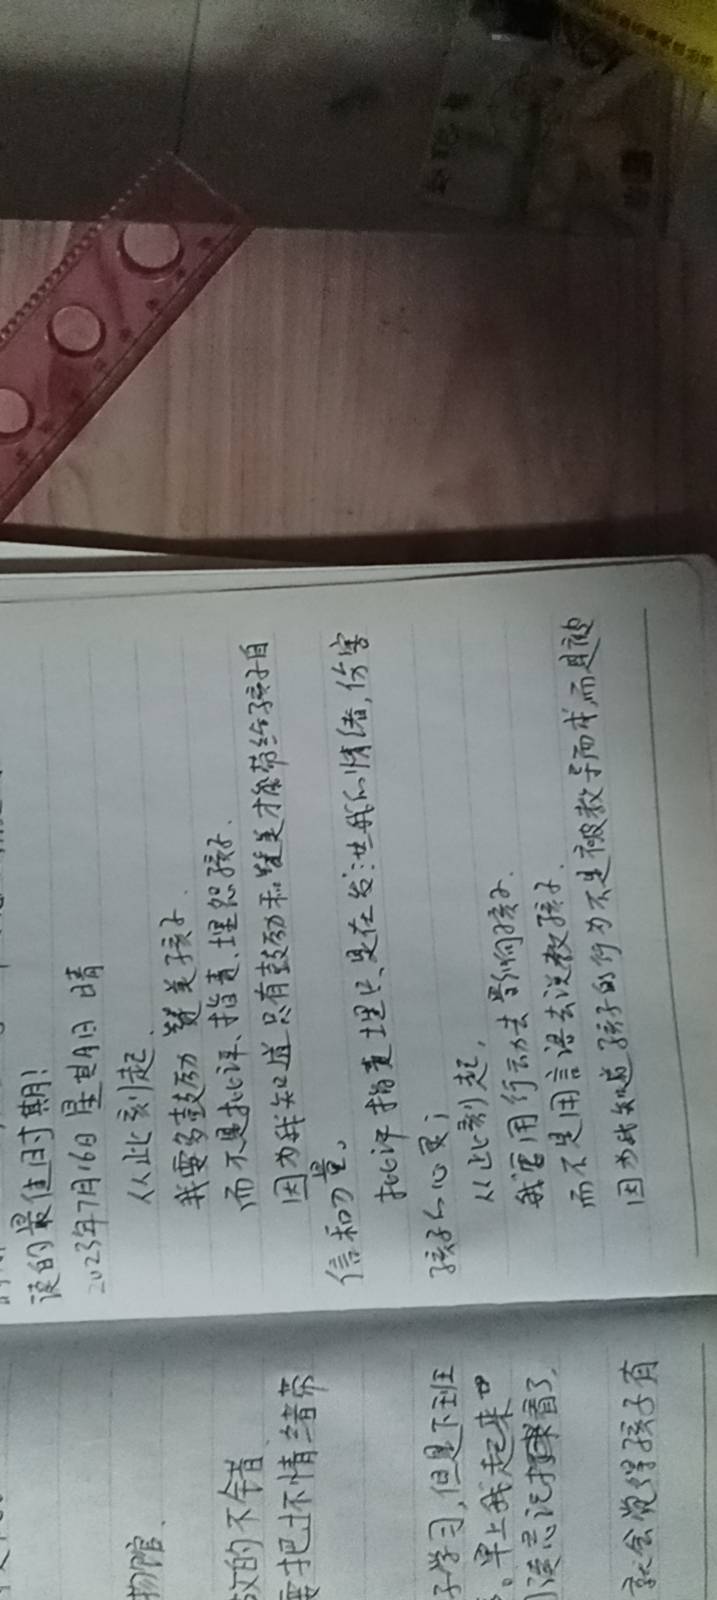 读的最佳时期!
2023年7月16日 星期日 晴
从此刻起、
我要多鼓励 赞美孩子.
而不是批评、指责、埋怨孩子.
因为我知道只有鼓励和赞美才能带给孩子自
信和力量、
批评 指责 埋怨、是在发泄我的情绪,伤害
孩子的心灵;
从此刻起,
我要用行动去影响孩子.
而不是用言语去说教孩子.
因为我知道孩子的行为不是被教导而来,而是被
物馆.
放的不错
要把坏情绪带
子学习,但是下班
。早上我起来
读忘记
看了,
就会觉得孩子有